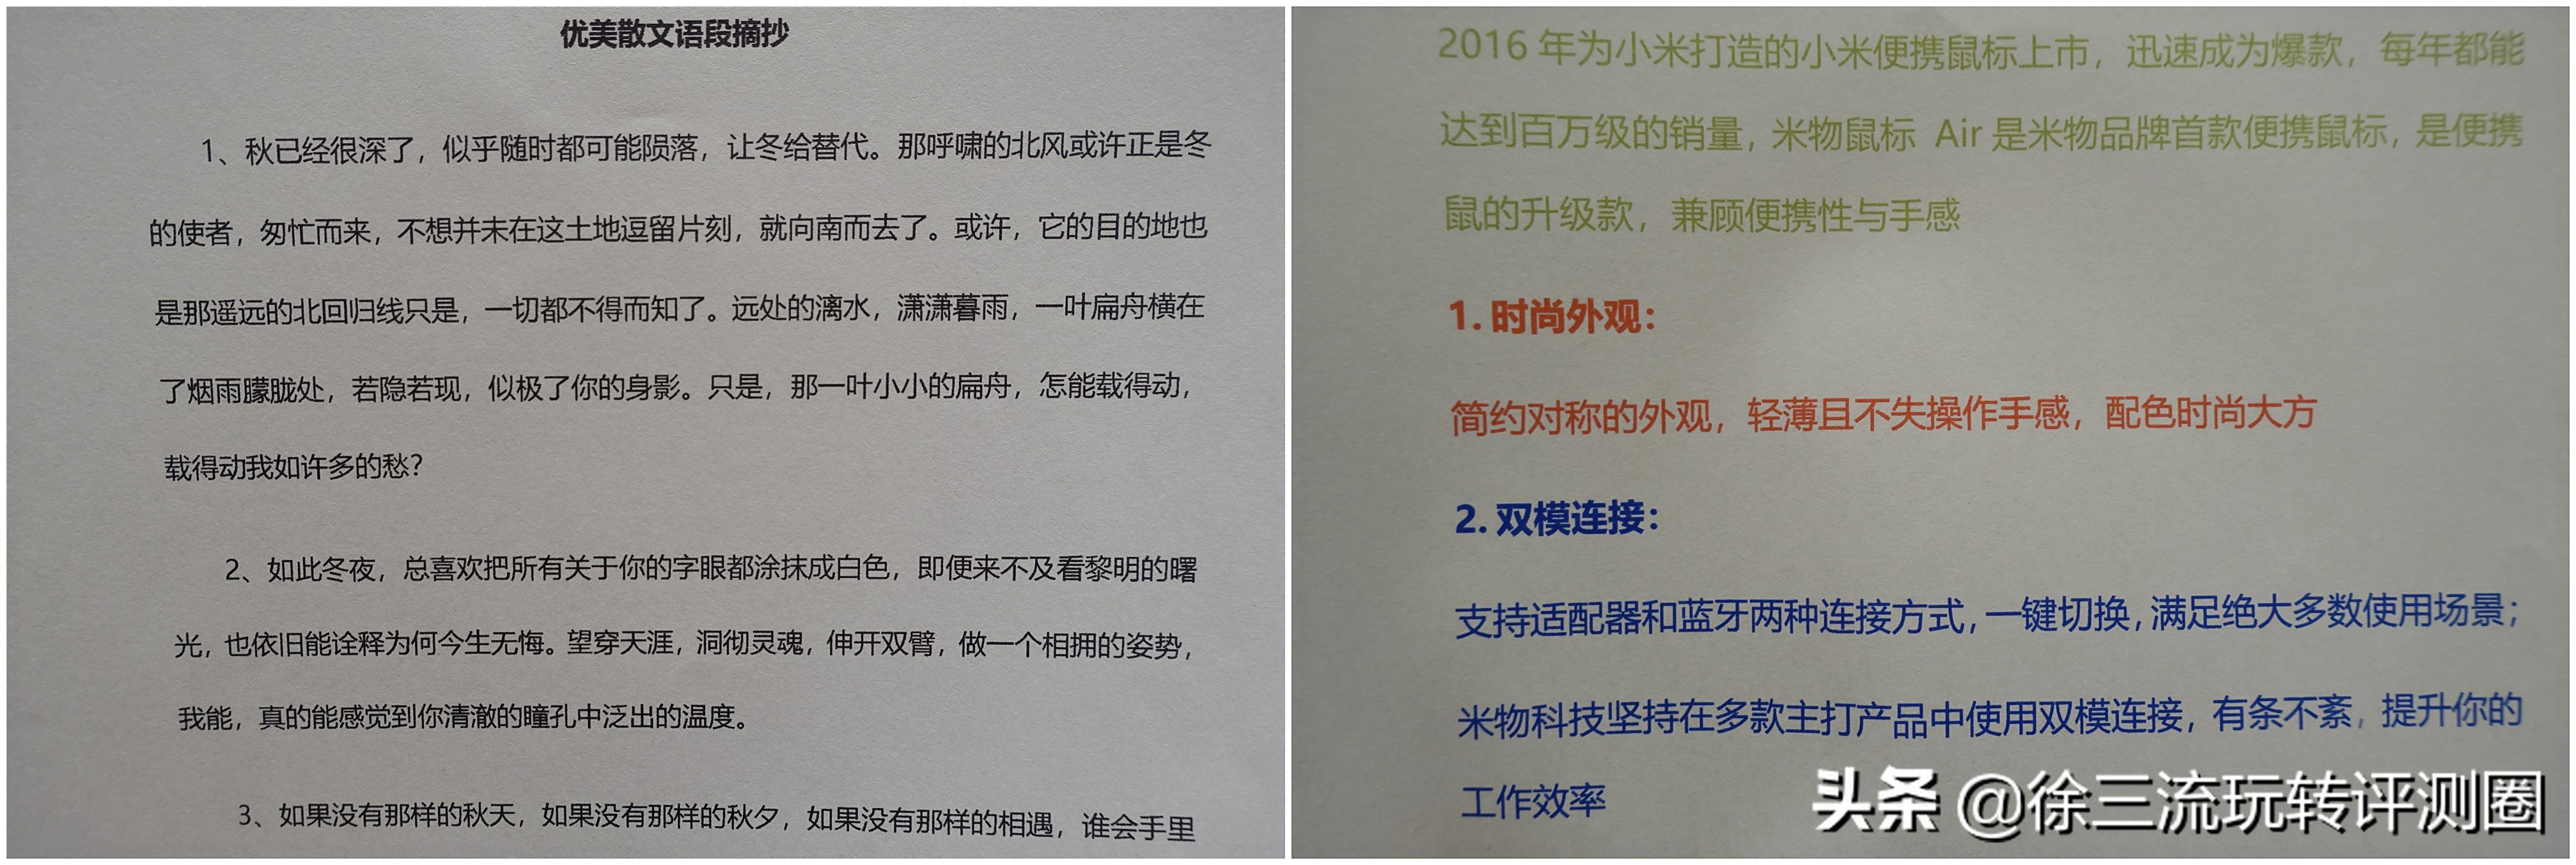 优美散文语段摘抄
1、秋已经很深了，似乎随时都可能陨落，让冬给替代。那呼啸的北风或许正是冬
的使者，匆忙而来，不想并未在这土地逗留片刻，就向南而去了。或许，它的目的地也
是那遥远的北回归线只是，一切都不得而知了。远处的漓水，潇潇暮雨，一叶扁舟横在
了烟雨朦胧处，若隐若现，似极了你的身影。只是，那一叶小小的扁舟，怎能载得动，
载得动我如许多的愁？
2、如此冬夜，总喜欢把所有关于你的字眼都涂抹成白色，即便来不及看黎明的曙
光，也依旧能诠释为何今生无悔。望穿天涯，洞彻灵魂，伸开双臂，做一个相拥的姿势，
我能，真的能感觉到你清澈的瞳孔中泛出的温度。
3、如果没有那样的秋天，如果没有那样的秋夕，如果没有那样的相遇，谁会手里
2016 年为小米打造的小米便携鼠标上市，迅速成为爆款，每年都能
达到百万级的销量，米物鼠标 Air 是米物品牌首款便携鼠标，是便携
鼠的升级款，兼顾便携性与手感
1. 时尚外观：
简约对称的外观，轻薄且不失操作手感，配色时尚大方
2. 双模连接：
支持适配器和蓝牙两种连接方式，一键切换，满足绝大多数使用场景；
米物科技坚持在多款主打产品中使用双模连接，有条不紊，提升你的
工作效率
头条 @徐三流玩转评测圈